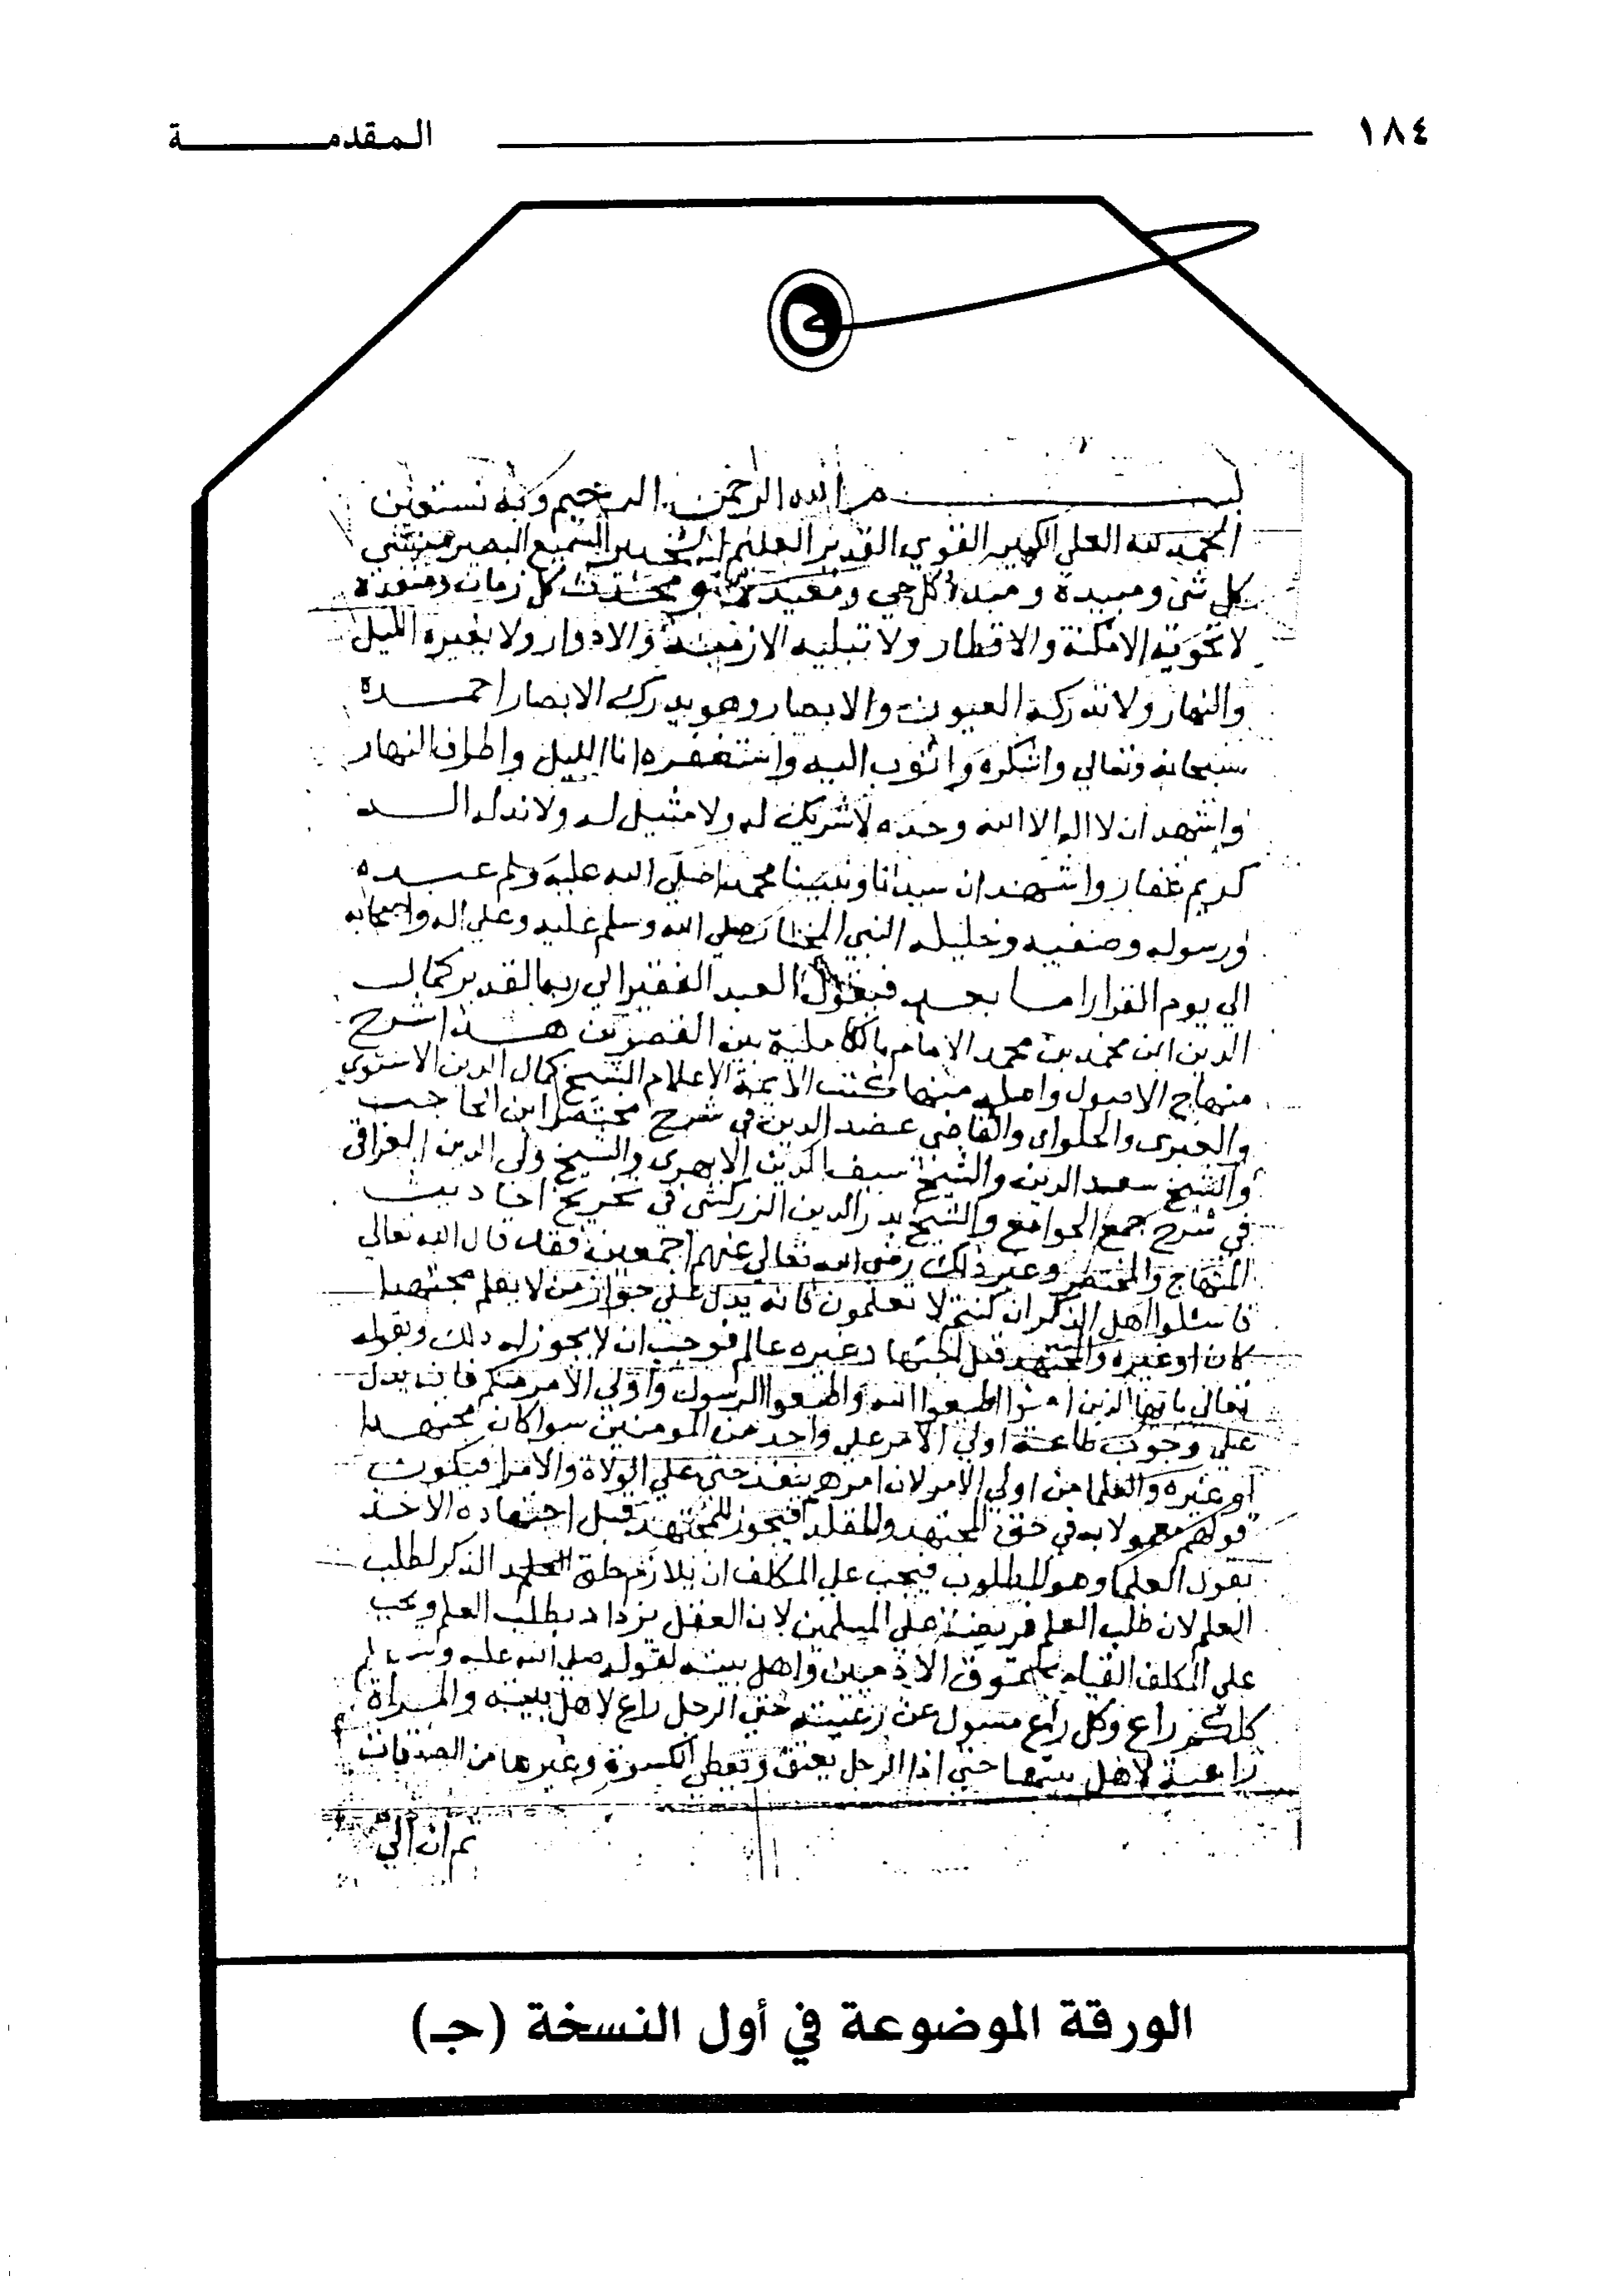 ١٨٤
المقدمة
بسم الله الرحمن الرحيم وبه نستعين
الحمد لله العلي الكبير القوي القدير العليم الخبير السميع البصير منشئ
كل شئ ومبيده ومبدأ كل حي ومعيده ومحدث كل زمان
لا تحويه الامكنة والاقطار ولا تبليه الازمنة والادوار ولا يغيره الليل
والنهار ولا تدركه العيون والابصار وهو يدرك الابصار احمده
سبحانه وتعالي واشكره واتوب اليه واستغفره انا الليل واطراف النهار
واشهد ان لا اله الا الله وحده لا شريك له ولا مثيل له ولا ند له اله
كريم غفار واشهد ان سيدنا ونبينا محمدا صلي الله عليه وسلم عبده
ورسوله وصفيه وخليله النبي المختار صلي الله وسلم عليه وعلي اله واصحابه
الي يوم القرار اما بعد فيقول العبد الفقير الي ربه القدير كمال
الدين ابن محمد بن محمد الامام بالكاملية بين القصرين هذا شرح
منهاج الاصول واصله منها كتب الائمة الاعلام الشيخ كمال الدين الاسنوي
والعبري والحلواي والقاضي عضد الدين في شرح مختصر ابن الحاجب
والشيخ سعد الدين والشيخ سيف الدين الابهري والشيخ ولي الدين العراقي
في شرح جمع الجوامع والشيخ بدر الدين الزركشي في تخريج احاديث
المنهاج والمختصر وغير ذلك رضي الله تعالي عنهم اجمعين فقد قال الله تعالي
فاسئلوا اهل الذكر ان كنتم لا تعلمون فانه يدل علي جواز من لا يعلم مجتهدا
كان او غيره والمجتهد قبل اجتهاده غير عالم فوجب ان لا يجوز له ذلك وبقوله
تعالي يا يها الذين امنوا اطيعوا الله واطيعوا الرسول واولي الامر منكم فانه يدل
علي وجوب طاعة اولي الامر علي واحد من المومنين سوا كان مجتهدا
او غيره والعلما من اولي الامر لان امرهم ينفذ حتي علي الولاة والامرا فيكون
قولهم معمولا به في حق المجتهد والمقلد فيجوز للمجتهد قبل اجتهاده الاخذ
بقول العلما وهو المطلوب فيجب علي المكلف ان يلازم حلق الذكر لطلب
العلم لان طلب العلم فريضة علي المسلمين لان العقل يزداد بطلب العلم ويجب
علي المكلف القيام بحقوق الادميين واهل بيته لقوله صلي الله عليه وسلم
كلكم راع وكل راع مسول عن رعيته حتي الرجل راع لاهل بيته والمراة
راعية لاهل بيتها حتي اذا الرجل يعتق ويعطي الكسرة وغيرها من الصدقات
ثم ان الي
الورقة الموضوعة في أول النسخة (جـ)